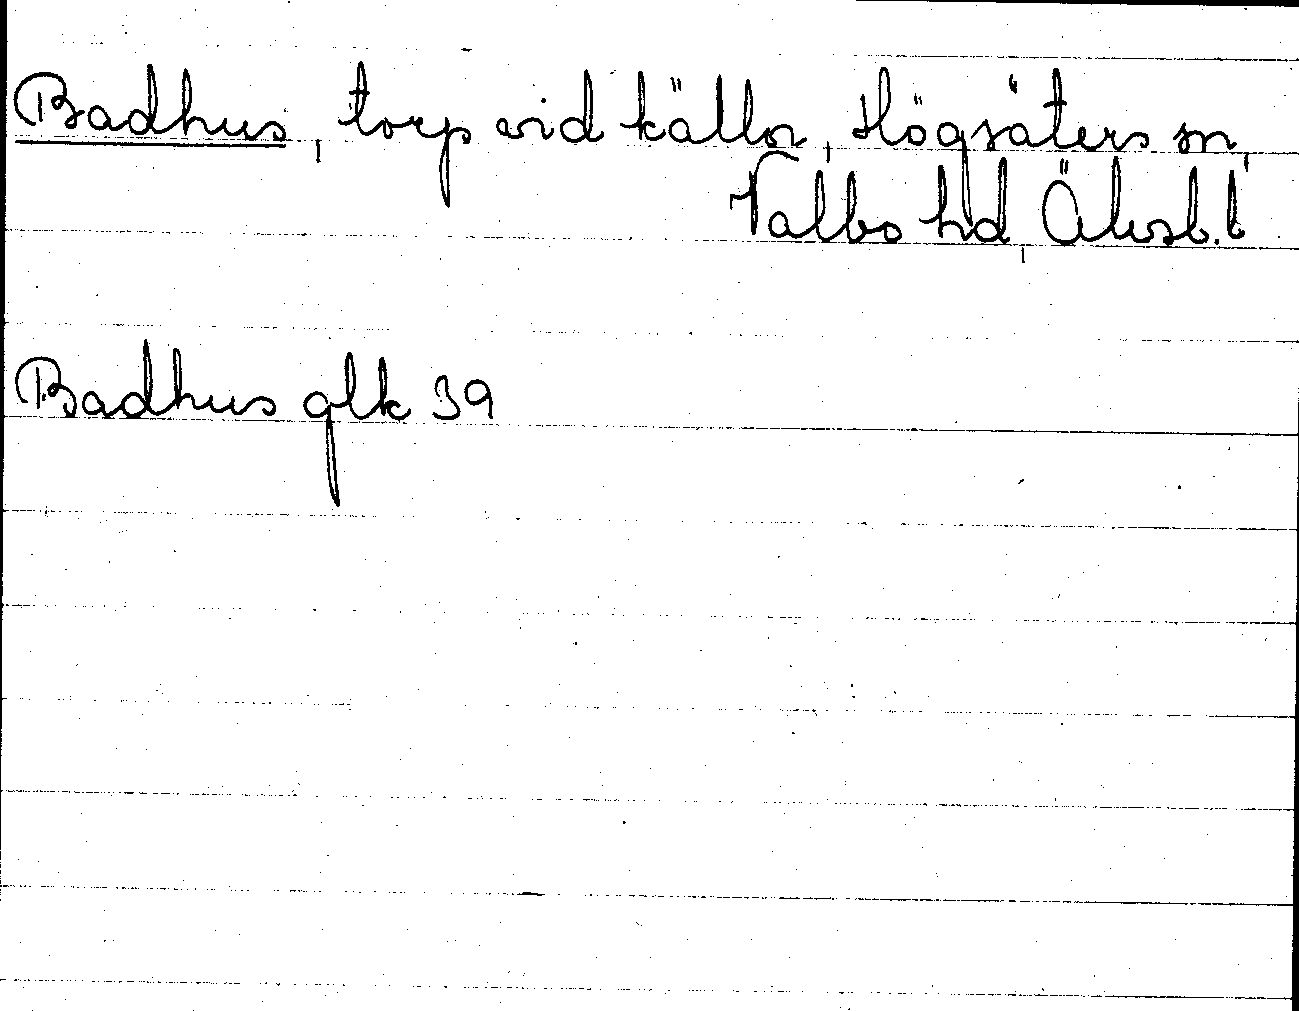 Badhus, torp vid källa, Högsäters sn,
Valbo hd, Älvsb. l
Badhus glk 39